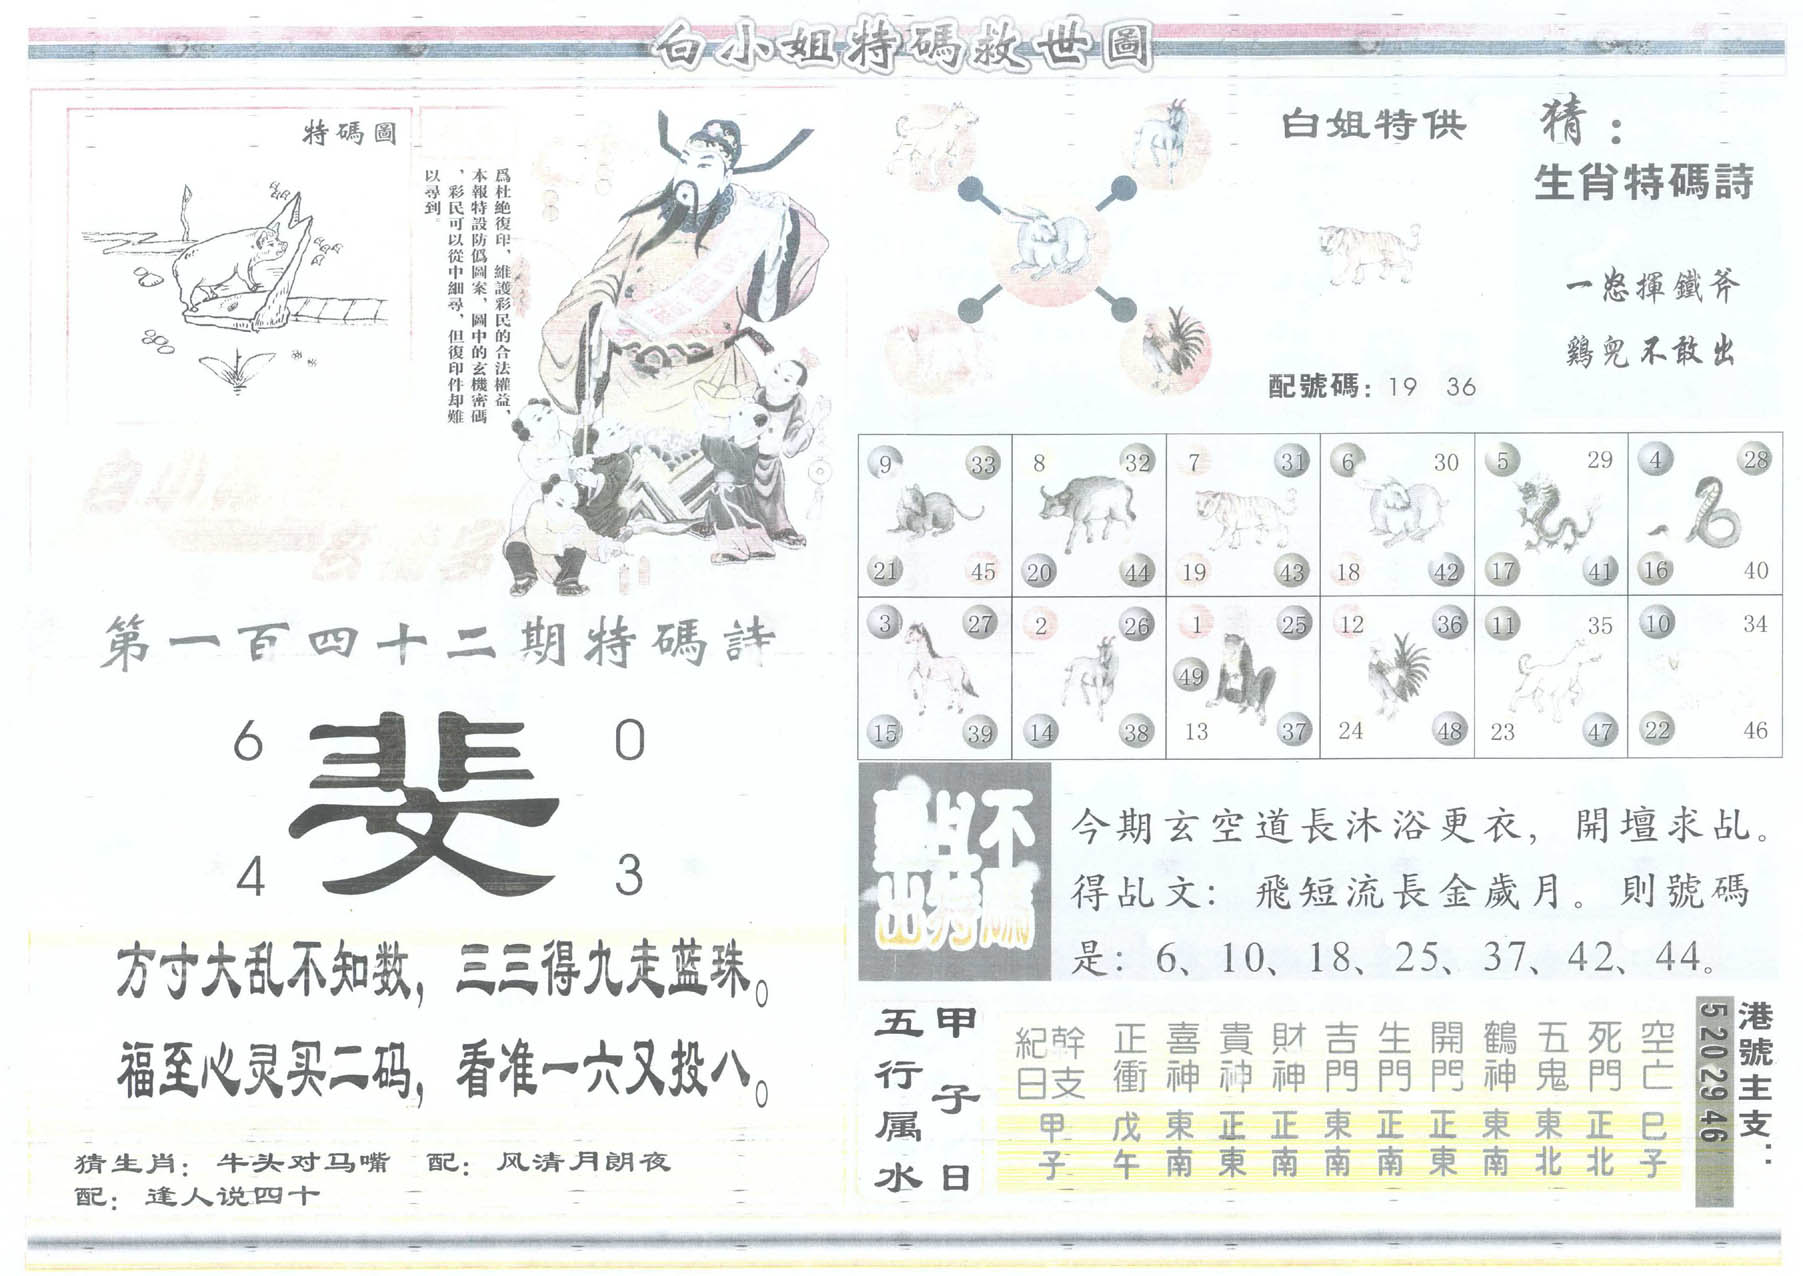 白小姐特碼救世圖
特碼圖
爲杜絶復印，維護彩民的合法權益，
本報特設防僞圖案，圖中的玄機密碼
，彩民可以從中細尋，但復印件却難
以尋到。
第一百四十二期特碼詩
6 0
斐
4 3
方寸大乱不知数，三三得九走蓝珠。
福至心灵买二码，看准一六又投八。
猜生肖：牛头对马嘴 配：风清月朗夜
配：逢人说四十
白姐特供
配號碼：19 36
猜：
生肖特碼詩
一怒揮鐵斧
鷄兒不敢出
9 33 8 32 7 31 6 30 5 29 4 28
21 45 20 44 19 43 18 42 17 41 16 40
3 27 2 26 1 25 12 36 11 35 10 34
49
15 39 14 38 13 37 24 48 23 47 22 46
不
乩
出特
今期玄空道長沐浴更衣，開壇求乩。
得乩文：飛短流長金歲月。則號碼
是：6、10、18、25、37、42、44。
甲子日
五行属水
紀日幹支 正衝 喜神 貴神 財神 吉門 生門 開門 鶴神 五鬼 死門 空亡
甲子 戊午 東南 正東 正南 東南 正南 正東 東南 東北 正北 巳子
港號主支：
5 20 29 46